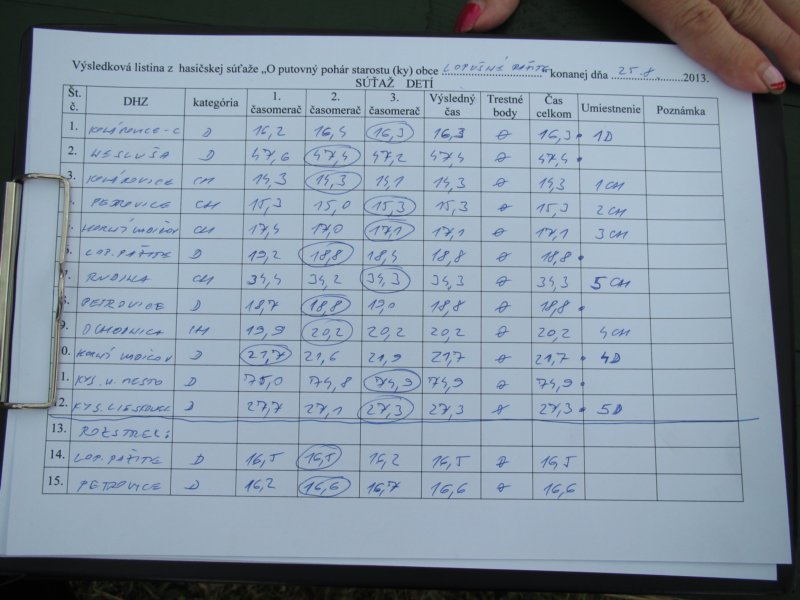 Výsledková listina z hasičskej súťaže „O putovný pohár starostu (ky) obce LOPUŠNÉ PAŽITE konanej dňa 25.8. 2013.
SÚŤAŽ DETÍ
Št. č. DHZ kategória 1. časomerač 2. časomerač 3. časomerač Výsledný čas Trestné body Čas celkom Umiestnenie Poznámka
1. KOLÁROVICE-C D 16,2 16,4 16,3 16,3 0 16,3 1D
2. NESLUŠA D 47,6 47,4 47,2 47,4 0 47,4
3. KOLÁROVICE CH 14,3 14,3 14,1 14,3 0 14,3 1CH
PETROVICE CH 15,3 15,0 15,3 15,3 0 15,3 2CH
CH 17,4 17,0 17,1 17,1 0 17,1 3CH
LOP. PAŽITE D 19,2 18,8 18,4 18,8 0 18,8
RUDINA CH 34,4 34,2 34,3 34,3 0 34,3 5CH
PETROVICE D 18,7 18,8 19,0 18,8 0 18,8
9. OCHODNICA CH 19,9 20,2 20,2 20,2 0 20,2 4CH
0. D 21,7 21,6 21,9 21,7 0 21,7 4D
1. KYS. N. MESTO D 75,0 74,8 74,9 74,9 0 74,9
12. KYS. LIESKOVEC D 27,7 27,1 27,3 27,3 0 27,3 5D
13. ROZSTREL:
14. LOP. PAŽITE D 16,5 16,5 16,2 16,5 0 16,5
15. PETROVICE D 16,2 16,6 16,7 16,6 0 16,6